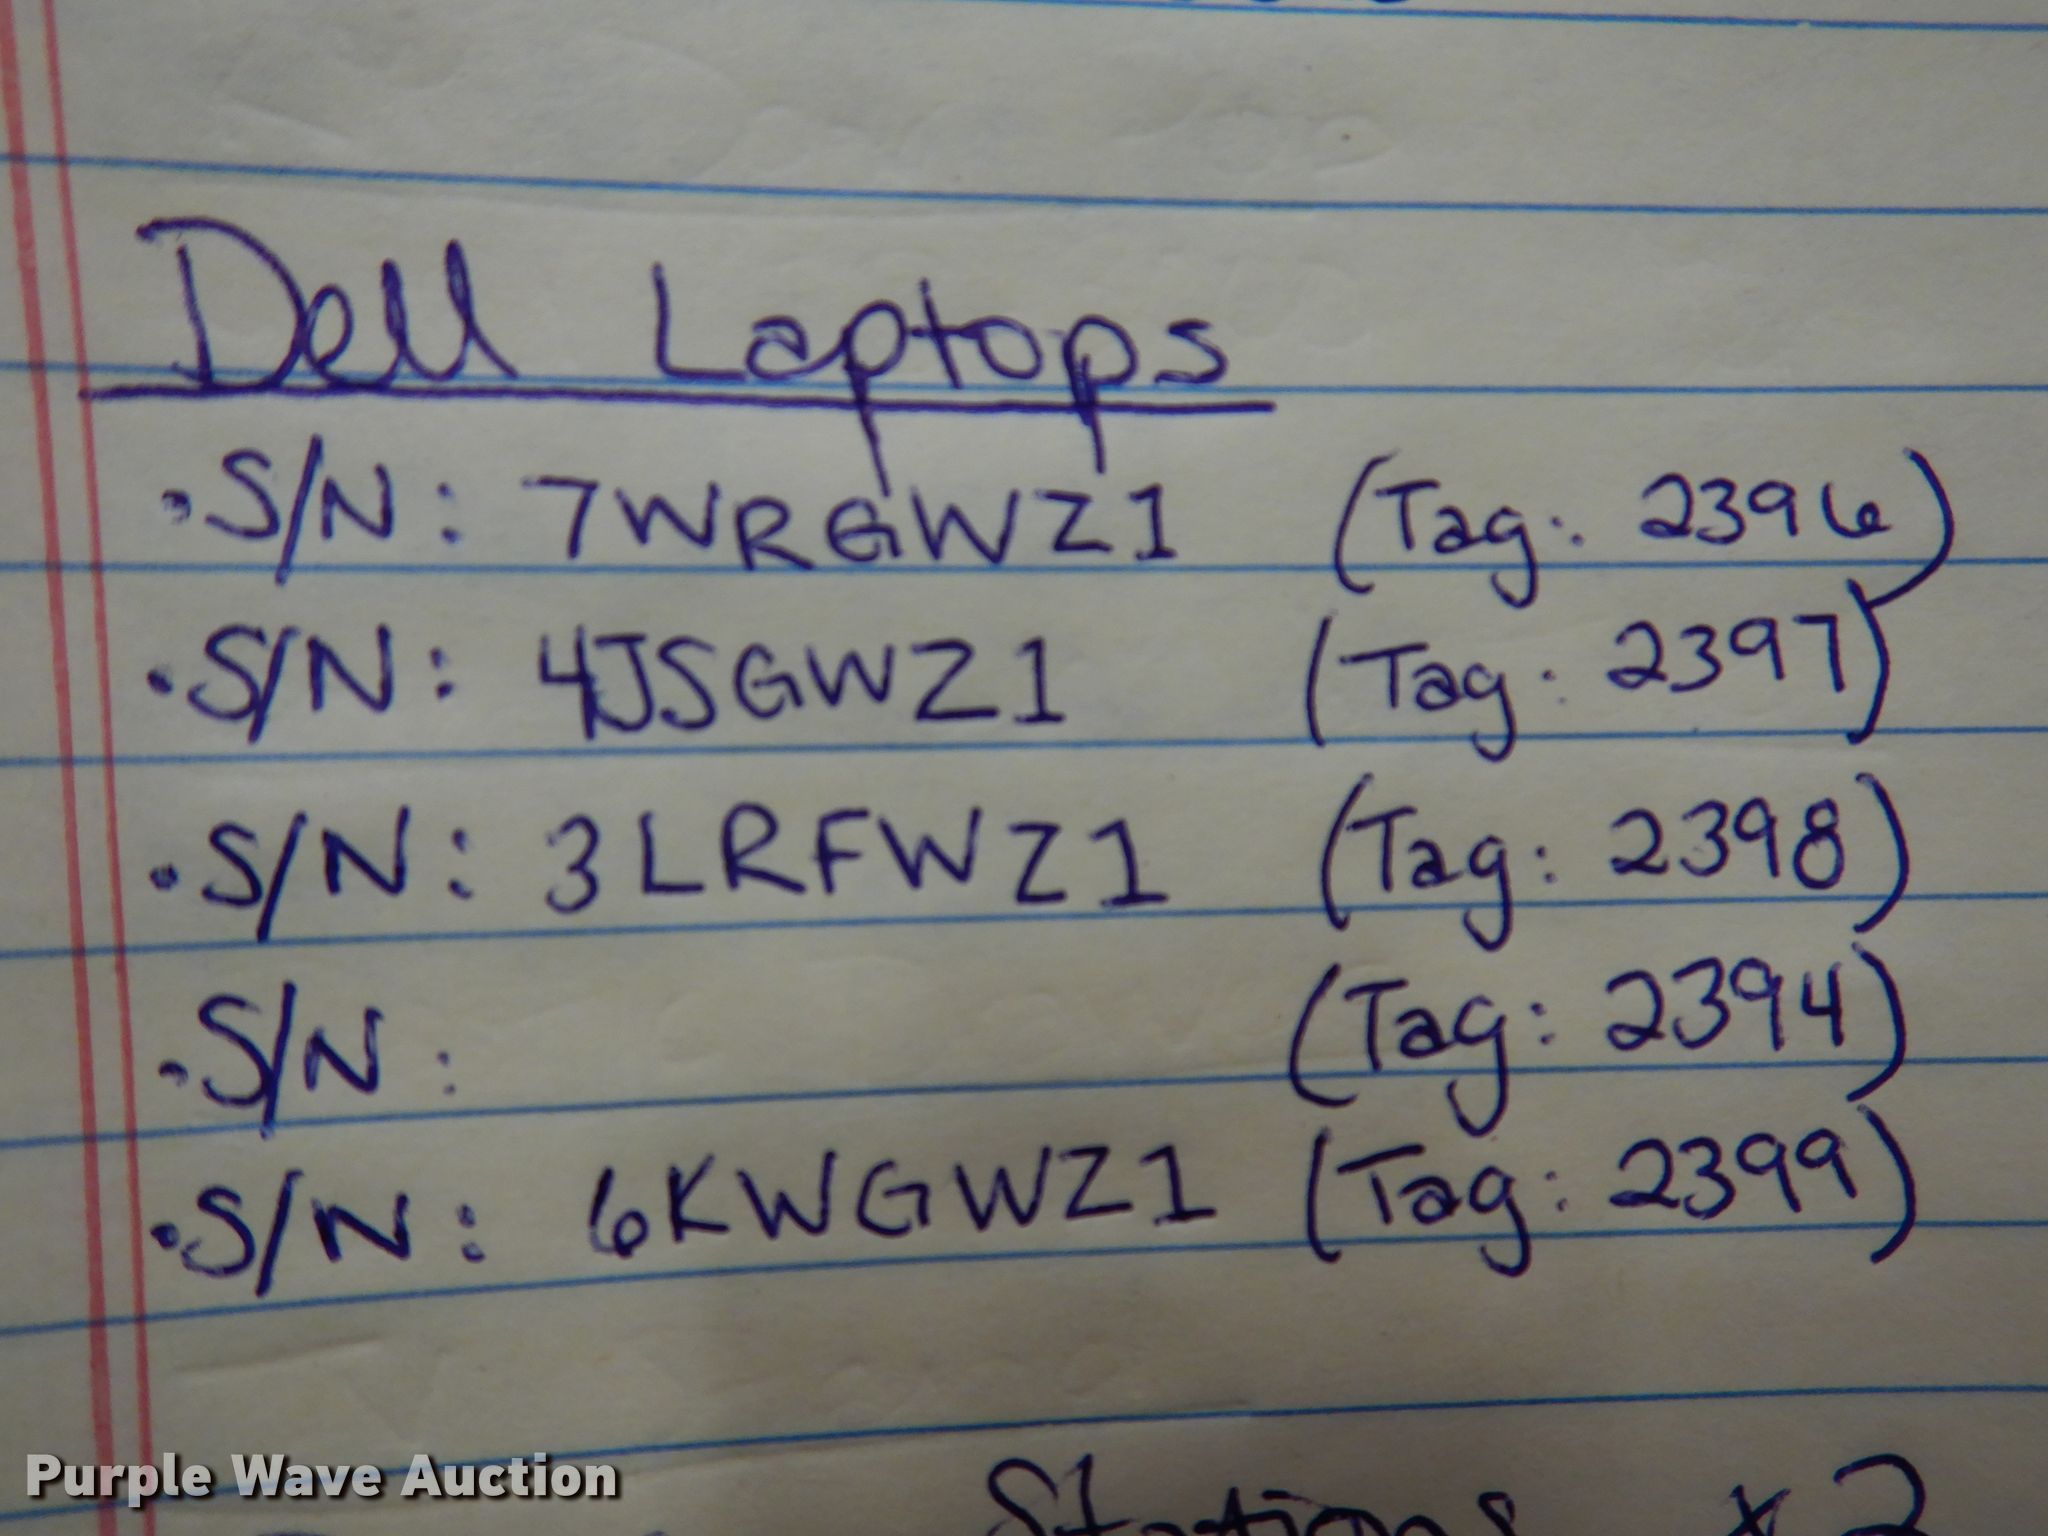 Dell Laptops
• S/N: 7WRGWZ1 (Tag: 2396)
• S/N: 4JSGWZ1 (Tag: 2397)
• S/N: 3LRFWZ1 (Tag: 2398)
• S/N: (Tag: 2394)
• S/N: 6KWGWZ1 (Tag: 2399)
Stations x 2
Purple Wave Auction